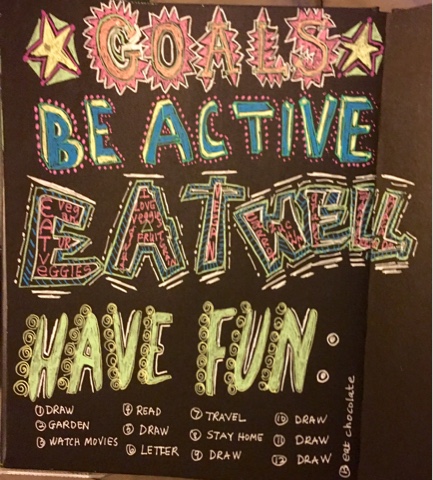 GOALS
BE ACTIVE
EAT WELL
HAVE FUN:
① DRAW
② GARDEN
③ WATCH MOVIES
④ READ
⑤ DRAW
⑥ LETTER
⑦ TRAVEL
⑧ STAY HOME
⑨ DRAW
⑩ DRAW
⑪ DRAW
⑫ DRAW
⑬ EAT chocolate